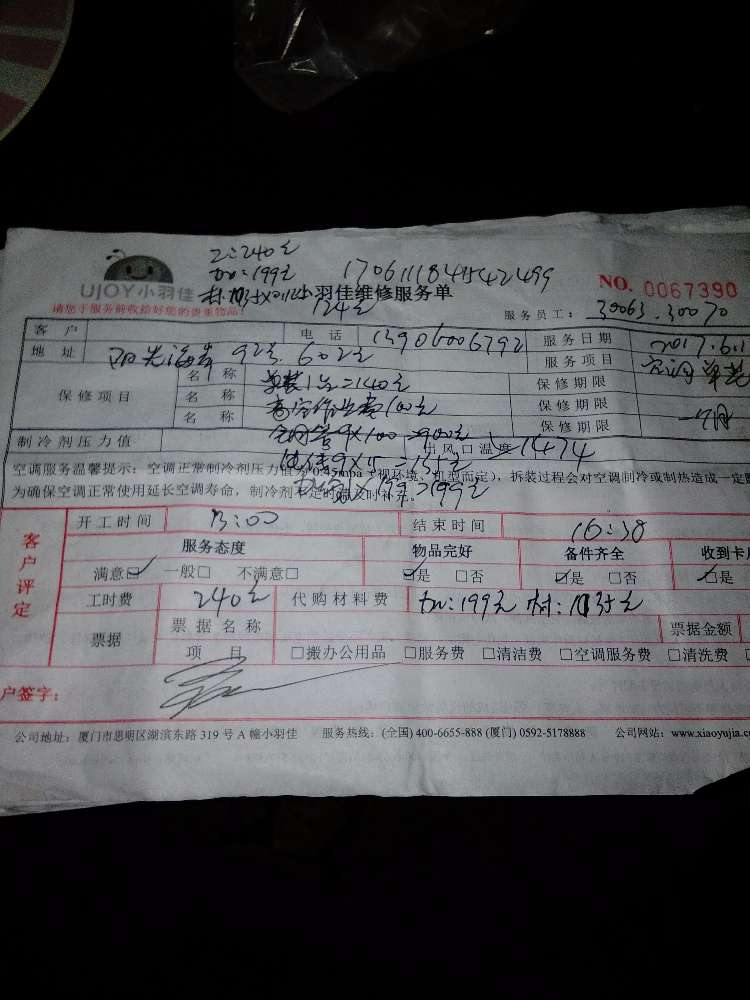 工:240元
加:199元
17061118454542499
UJOY小羽佳
小羽佳维修服务单
NO. 0067390
124元
请您于服务前收拾好您的贵重物品!
服务员工: 30063.30070
客 户
电 话
13906006792
服务日期
2017.6.11
地 址
阳光海岸 92号 602室
服务项目
空调单装
保修项目
名 称
单装1台=140元
保修期限
名 称
高空作业费100元
保修期限
名 称
保修期限
一个月
全铜管9×100=900元
制冷剂压力值
出风口温度
空调服务温馨提示:空调正常制冷剂压力值为0.45mpa(视环境、机型而定),拆装过程会对空调制冷或制热造成一定
为确保空调正常使用延长空调寿命,制冷剂不足时需及时补充。
客户评定
开工时间
13:00
结束时间
16:38
服务态度
物品完好
备件齐全
收到卡
满意☑ 一般□ 不满意□
☑是 □否
☑是 □否
☑是
工时费
240元
代购材料费
加:199元 材:1035元
票据
票据名称
票据金额
项 目
□搬办公用品 □服务费 □清洁费 □空调服务费 □清洗费
户签字:
公司地址:厦门市思明区湖滨东路 319 号 A 幢小羽佳 服务热线:(全国) 400-6655-888 (厦门) 0592-5178888 公司网站:www.xiaoyujia.co